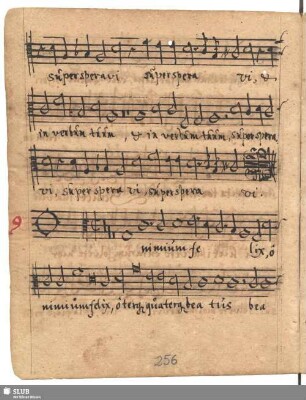 sup̄ersperavi sup̄erspera vi, &
in verbūm tūūm, & in verbūm tūūm, sup̄erspera
vi, sup̄erspera vi, sup̄erspera vi.
9
nimiūm fe lix, ô
nimiūm felix, ô terq, quaterq, bea tūs bea
256
SLUB